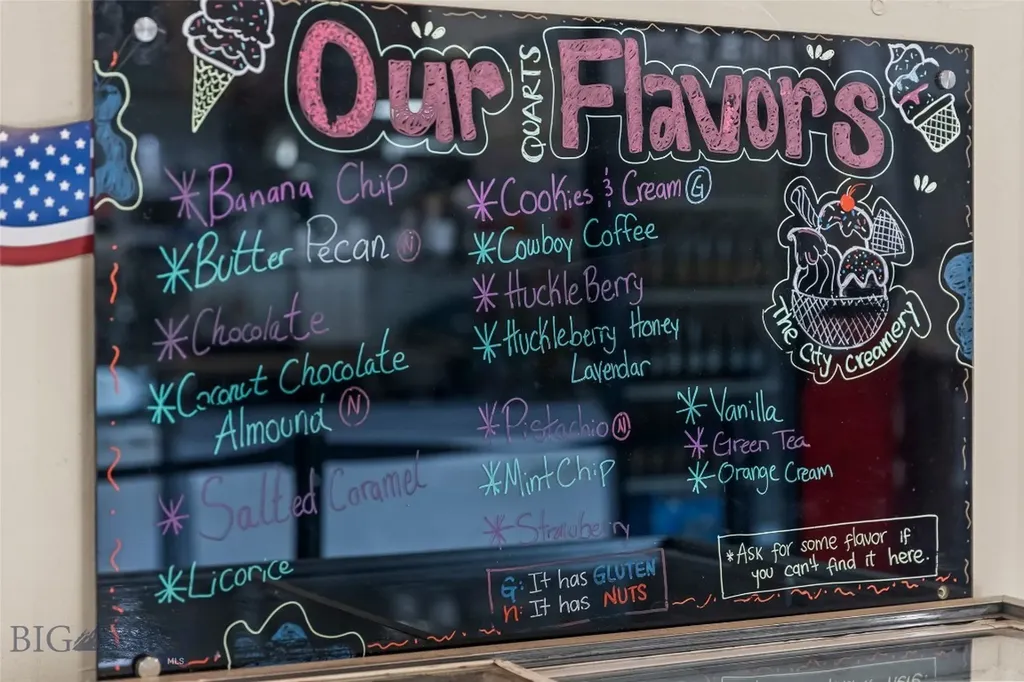 Our QUARTS Flavors
*Banana Chip
*Butter Pecan N
*Chocolate
*Coconut Chocolate
Almound N
*Salted Caramel
*Licorice
*Cookies & Cream G
*Cowboy Coffee
*HuckleBerry
*Huckleberry Honey
Lavendar
*Pistachio N
*Mint Chip
*Strawberry
*Vanilla
*Green Tea
*Orange Cream
The City Creamery
G: It has GLUTEN
n: It has NUTS
*Ask for some flavor if
you can't find it here.
BIG
MLS